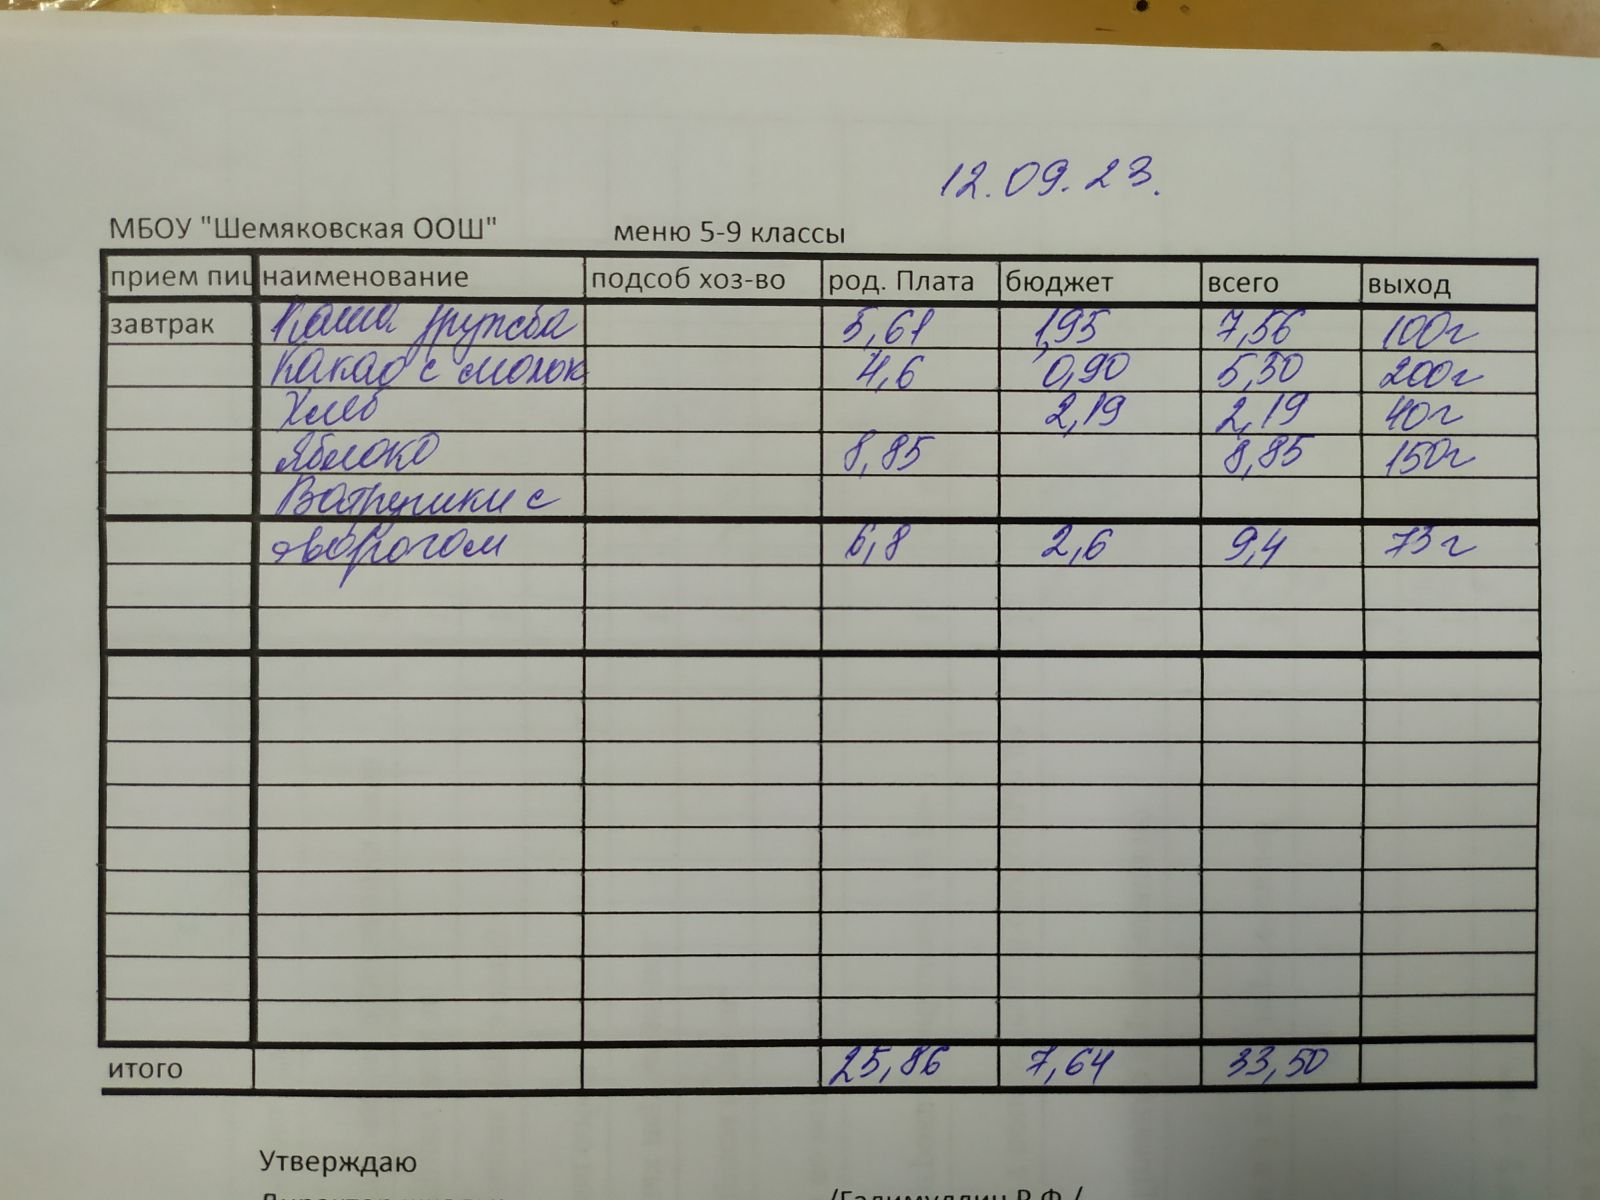 12.09.23.
МБОУ "Шемяковская ООШ" меню 5-9 классы
прием пищ наименование подсоб хоз-во род. Плата бюджет всего выход
завтрак Каша дружба 5,61 1,95 7,56 100г
Какао с молок 4,6 0,90 5,50 200г
Хлеб 2,19 2,19 40г
Яблоко 8,85 8,85 150г
Ватрушки с
творогом 6,8 2,6 9,4 73г
итого 25,86 7,64 33,50
Утверждаю
/Галимуллин Р.Ф./